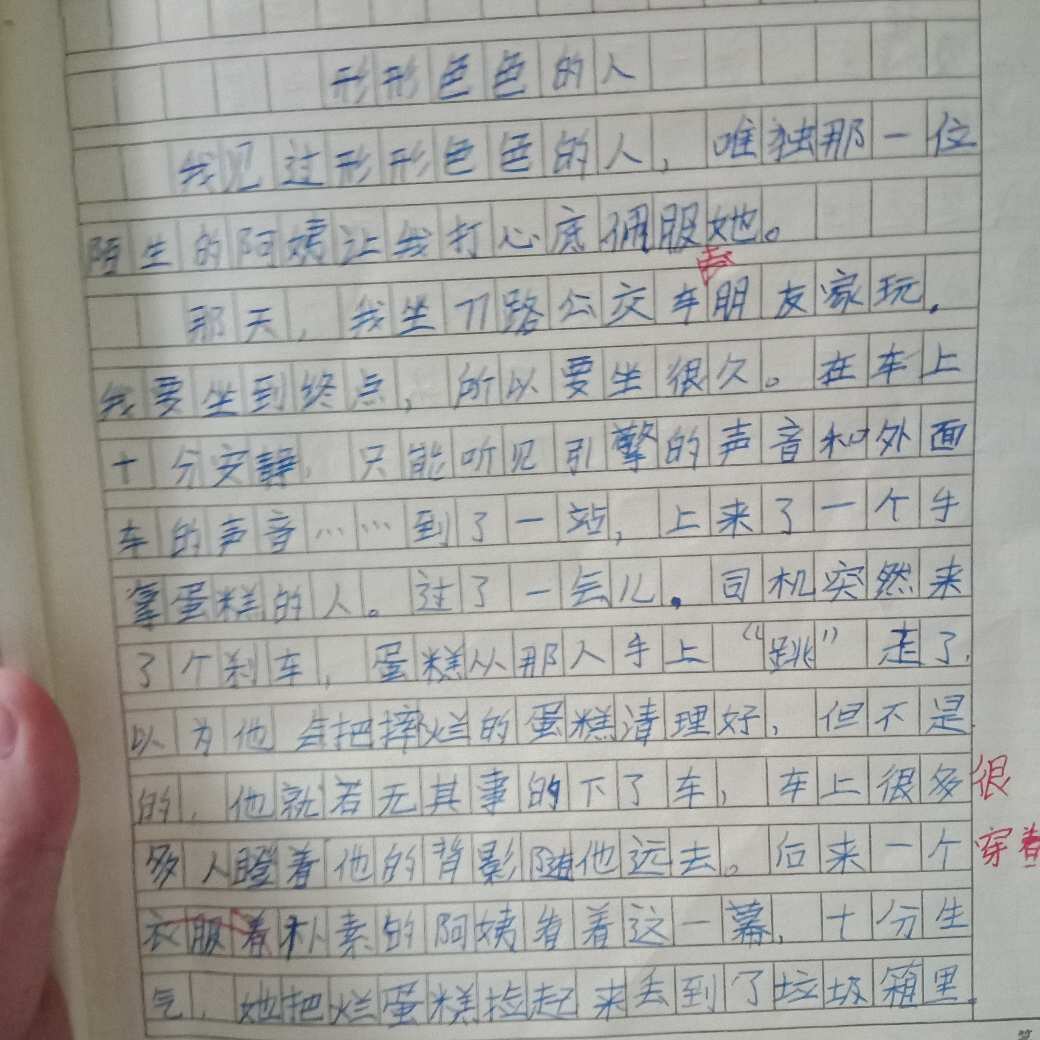 形形色色的人
我见过形形色色的人，唯独那一位
陌生的阿姨让我打心底佩服她。
去
那天，我坐77路公交车朋友家玩.
我要坐到终点，所以要坐很久。在车上
十分安静，只能听见引擎的声音和外面
车的声音……到了一站，上来了一个手
拿蛋糕的人。过了一会儿.司机突然来
了个刹车，蛋糕从那人手上“跳”走了.
以为他会把摔烂的蛋糕清理好，但不是
的，他就若无其事的下了车，车上很多 很
多人瞪着他的背影随他远去。后来一个 穿着
衣服着朴素的阿姨看着这一幕，十分生
气，她把烂蛋糕捡起来丢到了垃圾箱里.